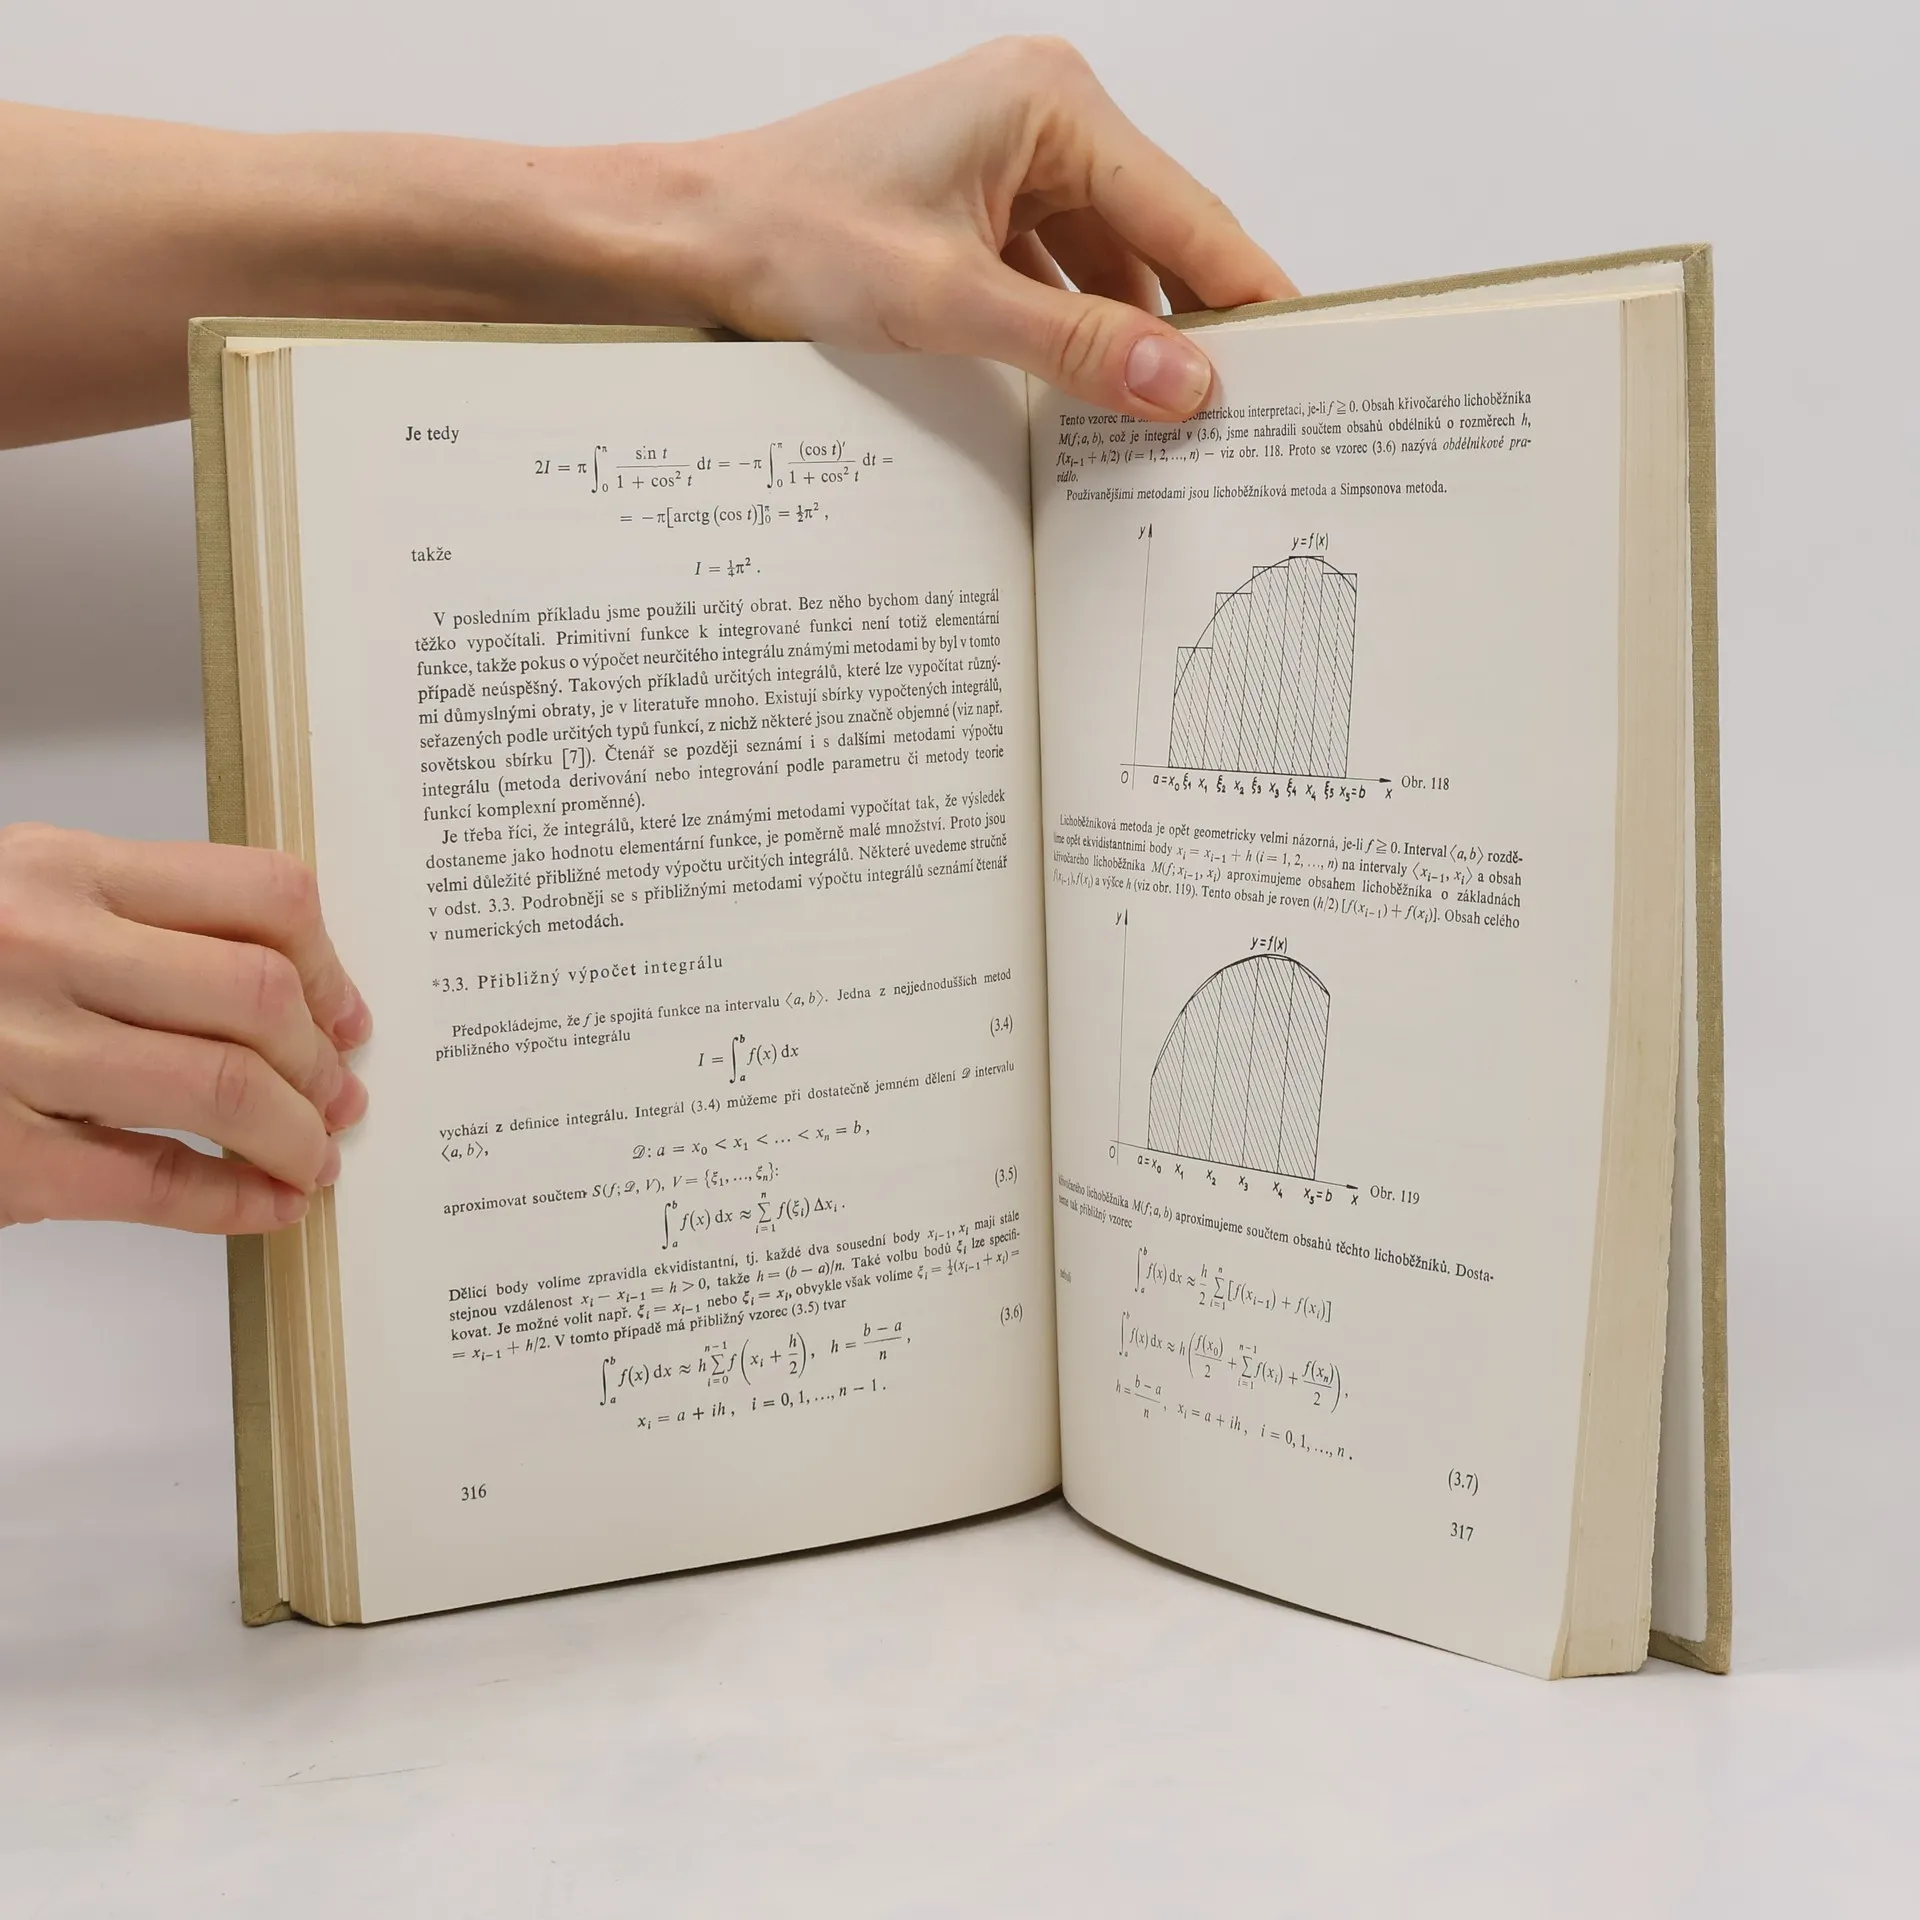 Je tedy
2I = π ∫₀^π sin t / (1 + cos² t) dt = −π ∫₀^π (cos t)′ / (1 + cos² t) dt =
= −π[arctg (cos t)]₀^π = ½π² ,
takže
I = ¼π² .
V posledním příkladu jsme použili určitý obrat. Bez něho bychom daný integrál
těžko vypočítali. Primitivní funkce k integrované funkci není totiž elementární
funkce, takže pokus o výpočet neurčitého integrálu známými metodami by byl v tomto
případě neúspěšný. Takových příkladů určitých integrálů, které lze vypočítat různý-
mi důmyslnými obraty, je v literatuře mnoho. Existují sbírky vypočtených integrálů,
seřazených podle určitých typů funkcí, z nichž některé jsou značně objemné (viz např.
sovětskou sbírku [7]). Čtenář se později seznámí i s dalšími metodami výpočtu
integrálu (metoda derivování nebo integrování podle parametru či metody teorie
funkcí komplexní proměnné).
Je třeba říci, že integrálů, které lze známými metodami vypočítat tak, že výsledek
dostaneme jako hodnotu elementární funkce, je poměrně malé množství. Proto jsou
velmi důležité přibližné metody výpočtu určitých integrálů. Některé uvedeme stručně
v odst. 3.3. Podrobněji se s přibližnými metodami výpočtu integrálů seznámí čtenář
v numerických metodách.
*3.3. Přibližný výpočet integrálu
Předpokládejme, že f je spojitá funkce na intervalu ⟨a, b⟩. Jedna z nejjednodušších metod
přibližného výpočtu integrálu
I = ∫ₐᵇ f(x) dx (3.4)
vychází z definice integrálu. Integrál (3.4) můžeme při dostatečně jemném dělení 𝒟 intervalu
⟨a, b⟩,
𝒟: a = x₀ < x₁ < ... < xₙ = b ,
aproximovat součtem S(f; 𝒟, V), V = {ξ₁, ..., ξₙ}:
∫ₐᵇ f(x) dx ≈ Σᵢ₌₁ⁿ f(ξᵢ) Δxᵢ . (3.5)
Dělicí body volíme zpravidla ekvidistantní, tj. každé dva sousední body xᵢ₋₁, xᵢ mají stále
stejnou vzdálenost xᵢ − xᵢ₋₁ = h > 0, takže h = (b − a)/n. Také volbu bodů ξᵢ lze specifi-
kovat. Je možné volit např. ξᵢ = xᵢ₋₁ nebo ξᵢ = xᵢ, obvykle však volíme ξᵢ = ½(xᵢ₋₁ + xᵢ) =
= xᵢ₋₁ + h/2. V tomto případě má přibližný vzorec (3.5) tvar
∫ₐᵇ f(x) dx ≈ h Σᵢ₌₀ⁿ⁻¹ f(xᵢ + h/2), h = (b − a)/n , (3.6)
xᵢ = a + ih , i = 0, 1, ..., n − 1 .
316
Tento vzorec geometrickou interpretaci, je-li f ≧ 0. Obsah křivočarého lichoběžníka
M(f; a, b), což je integrál v (3.6), jsme nahradili součtem obsahů obdélníků o rozměrech h,
f(xᵢ₋₁ + h/2) (i = 1, 2, ..., n) — viz obr. 118. Proto se vzorec (3.6) nazývá obdélníkové pra-
vidlo.
Používanějšími metodami jsou lichoběžníková metoda a Simpsonova metoda.
y
y=f(x)
0 a=x₀ ξ₁ x₁ ξ₂ x₂ ξ₃ x₃ ξ₄ x₄ ξ₅ x₅=b x Obr. 118
Lichoběžníková metoda je opět geometricky velmi názorná, je-li f ≧ 0. Interval ⟨a, b⟩ rozdě-
líme opět ekvidistantními body xᵢ = xᵢ₋₁ + h (i = 1, 2, ..., n) na intervaly ⟨xᵢ₋₁, xᵢ⟩ a obsah
křivočarého lichoběžníka M(f; xᵢ₋₁, xᵢ) aproximujeme obsahem lichoběžníka o základnách
f(xᵢ₋₁), f(xᵢ) a výšce h (viz obr. 119). Tento obsah je roven (h/2) [f(xᵢ₋₁) + f(xᵢ)]. Obsah celého
y
y=f(x)
0 a=x₀ x₁ x₂ x₃ x₄ x₅=b x Obr. 119
křivočarého lichoběžníka M(f; a, b) aproximujeme součtem obsahů těchto lichoběžníků. Dosta-
neme tak přibližný vzorec
∫ₐᵇ f(x) dx ≈ h/2 Σᵢ₌₁ⁿ [f(xᵢ₋₁) + f(xᵢ)]
∫ₐᵇ f(x) dx ≈ h (f(x₀)/2 + Σᵢ₌₁ⁿ⁻¹ f(xᵢ) + f(xₙ)/2) ,
h = (b − a)/n , xᵢ = a + ih , i = 0, 1, ..., n .
(3.7)
317